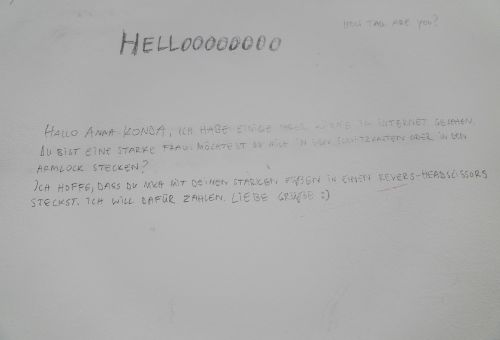 HOW TALL ARE YOU?
HELLOOOOOOOO
HALLO ANNA KONDA, ICH HABE EINIGE IHRER IM INTERNET GESEHEN.
DU BIST EINE STARKE FRAU. MÖCHTEST DU MICH IN DEN SCHWITZKASTEN ODER IN DEN
ARMLOCK STECKEN?
ICH HOFFE, DASS DU MICH MIT DEINEN STARKEN FÜßEN IN EINEN REVERS-HEADSCISSORS
STECKST. ICH WILL DAFÜR ZAHLEN. LIEBE GRÜßE :)